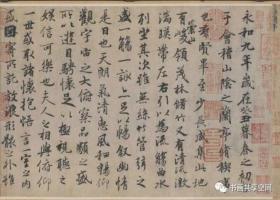 永和九年歲在癸丑暮春之初會
于會稽山陰之蘭亭脩稧事
也羣賢畢至少長咸集此地
有崇山峻領茂林脩竹又有清流激
湍暎帶左右引以為流觴曲水
列坐其次雖無絲竹管弦之
盛一觴一詠亦足以暢敘幽情
是日也天朗氣清惠風和暢仰
觀宇宙之大俯察品類之盛
所以遊目騁懷足以極視聽之
娛信可樂也夫人之相與俯仰
一世或取諸懷抱悟言一室之內
或因寄所託放浪形骸之外雖
书画共享空间